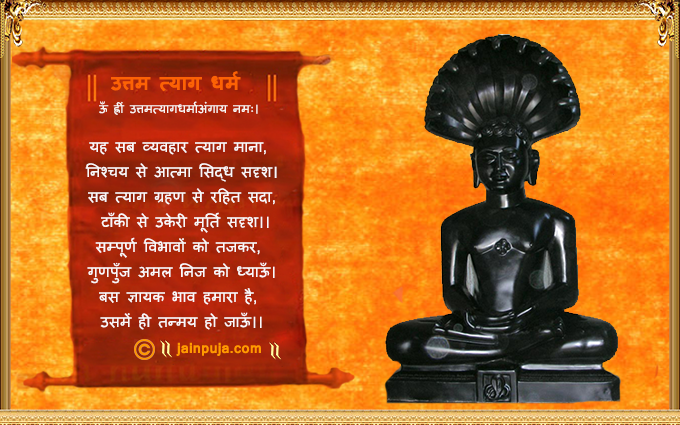 || उत्तम त्याग धर्म ||
ऊँ ह्रीं उत्तमत्यागधर्माअंगाय नमः।
यह सब व्यवहार त्याग माना,
निश्चय से आत्मा सिद्ध सदृश।
सब त्याग ग्रहण से रहित सदा,
टाँकी से उकेरी मूर्ति सदृश।।
सम्पूर्ण विभावों को तजकर,
गुणपुँज अमल निज को ध्याऊँ।
बस ज्ञायक भाव हमारा है,
उसमें ही तन्मय हो जाऊँ।।
© || jainpuja.com ||